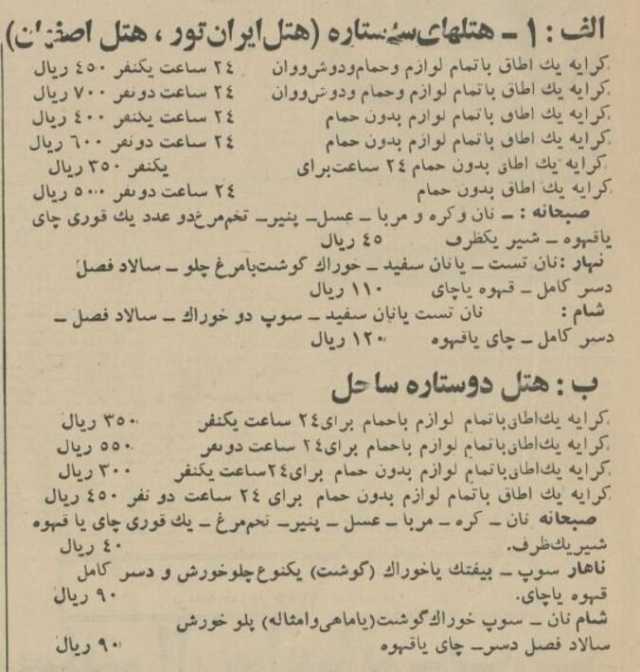 الف : ۱ ـ هتلهای سه ستاره (هتل ایران تور ، هتل اصفهان)
کرایه یك اطاق باتمام لوازم وحمام ودوش ووان ۲٤ ساعت یکنفر ٤٥۰ ریال
کرایه یك اطاق باتمام لوازم وحمام ودوش ووان ۲٤ ساعت دونفر ۷۰۰ ریال
کرایه یك اطاق باتمام لوازم بدون حمام ۲٤ ساعت یکنفر ٤۰۰ ریال
کرایه یك اطاق باتمام لوازم بدون حمام ۲٤ ساعت دونفر ٦۰۰ ریال
کرایه یك اطاق بدون حمام ۲٤ ساعت برای یکنفر ۳٥۰ ریال
کرایه یك اطاق بدون حمام ۲٤ ساعت دونفر ٥۰۰ ریال
صبحانه : ـ نان وکره و مربا ـ عسل ـ پنیر ـ تخم مرغ دو عدد یك قوری چای
یاقهوه ـ شیر یکظرف ٤٥ ریال
نهار : نان تست ـ یانان سفید ـ خوراك گوشت یامرغ چلو ـ سالاد فصل
دسر کامل ـ قهوه یاچای ۱۱۰ ریال
شام : نان تست یانان سفید ـ سوپ دو خوراك ـ سالاد فصل ـ
دسر کامل ـ چای یاقهوه ۱۲۰ ریال
ب : هتل دوستاره ساحل
کرایه یك اطاق باتمام لوازم باحمام برای ۲٤ ساعت یکنفر ۳٥۰ ریال
کرایه یك اطاق باتمام لوازم باحمام برای ۲٤ ساعت دونفر ٥٥۰ ریال
کرایه یك اطاق باتمام لوازم بدون حمام برای ۲٤ ساعت یکنفر ۳۰۰ ریال
کرایه یك اطاق باتمام لوازم بدون حمام برای ۲٤ ساعت دو نفر ٤٥۰ ریال
صبحانه نان ـ کره ـ مربا ـ عسل ـ پنیر ـ تخم مرغ ـ یك قوری چای یا قهوه
شیر یك ظرف. ٤۰ ریال
ناهار سوپ ـ بیفتك یاخوراك (گوشت) یکنوع چلوخورش و دسر کامل
قهوه یاچای. ۹۰ ریال
شام نان ـ سوپ خوراك گوشت (یاماهی وامثاله) پلو خورش
سالاد فصل دسر ـ چای یاقهوه ۹۰ ریال